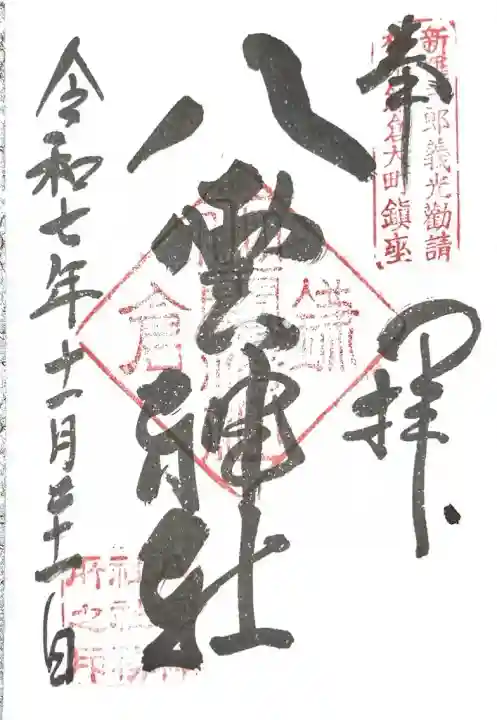 奉拝
新羅三郎義光勸請
相州鎌倉大町鎮座
八雲神社
鎌倉
令和七年十一月二十一日
所之印